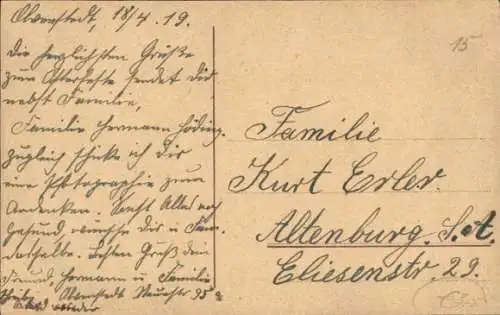 Oberstedt, 18/4.19.
Die herzlichsten Grüße
zum Osterfeste sendet Dir
nebst Familie,
Familie Hermann Höding.
zugleich schicke ich Dir
eine Photographie zum
Andenken. Sonst Alles noch
gesund, wünsche dir u. Fam.
dasselbe. Besten Gruß dein
Freund, Hermann u. Familie
Neuestr 95a
bald wieder
15
Familie
Kurt Erler.
Altenburg. S.A.
Eliesenstr. 29.